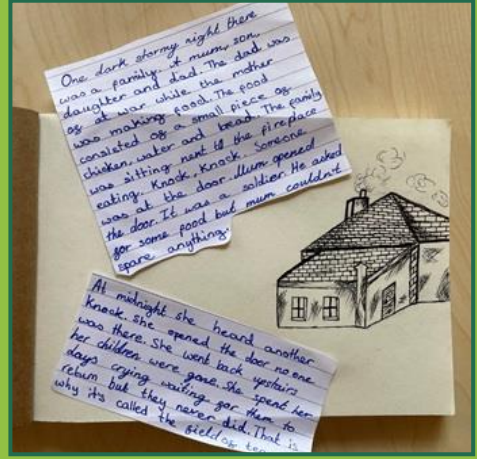 One dark stormy night there
was a family. A mum, son,
daughter and dad. The dad was
of at war while the mother
was making food. The food
consisted of a small piece of
chicken, water and bread. The family
was sitting next to the fireplace
eating. Knock, Knock. Someone
was at the door. Mum opened
the door. It was a soldier. He asked
for some food but mum couldn't
spare anything.
At midnight she heard another
Knock. She opened the door no one
was there. She went back upstairs
her children were gone. She spent her
days crying waiting for them to
return but they never did. That is
why it's called the field of